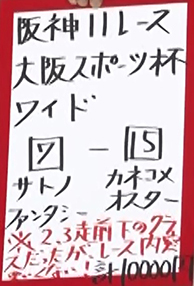 阪神11レース
大阪スポーツ杯
ワイド
7 − 15
サトノ カネコメ
ファンタシー オスター
※2,3走前下のクラ
スだったがレース内容
計10000円